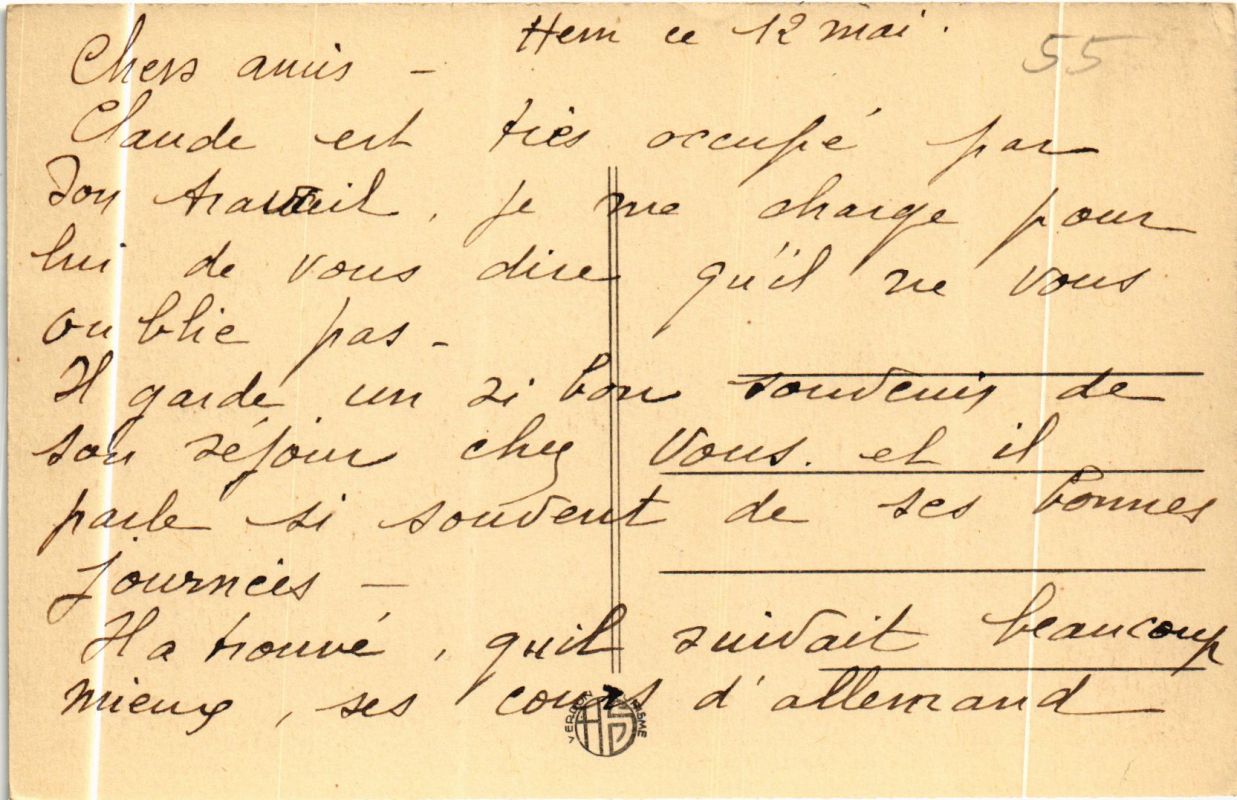 Hem ce 12 mai.
55
Chers amis -
Claude est très occupé par
son travail, je me charge pour
lui de vous dire qu'il ne vous
oublie pas -
Il garde un si bon souvenir de
son séjour chez vous. et il
parle si souvent de ses bonnes
journées -
Il a trouvé, qu'il suivait beaucoup
mieux, ses cours d'allemand
HS